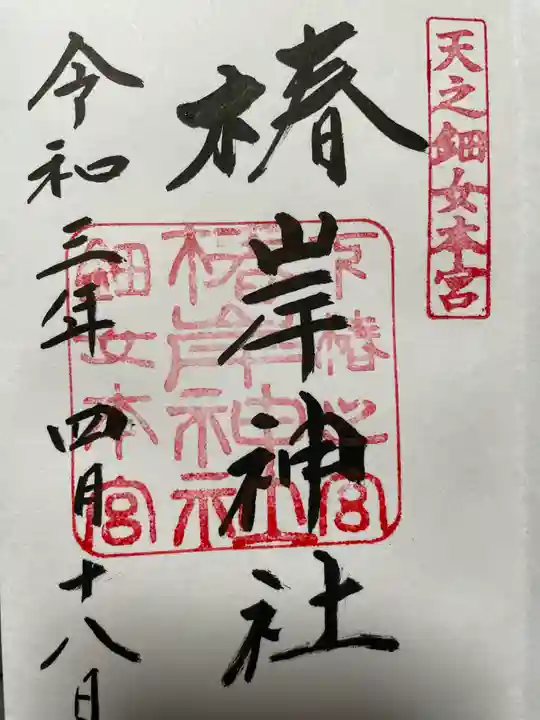 天之鈿女本宮
椿岸神社
令和三年四月十八日
椿岸神社
鈿女本宮